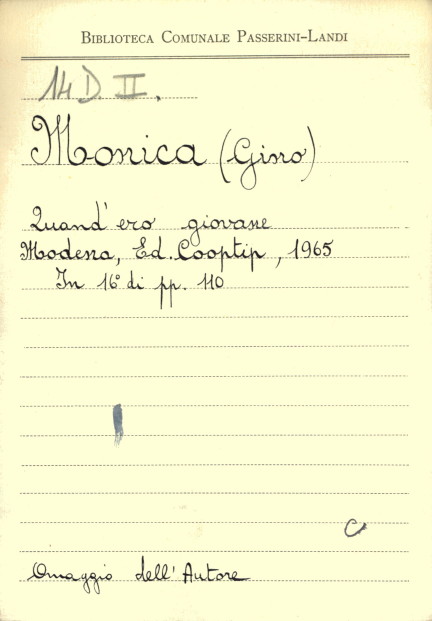 BIBLIOTECA COMUNALE PASSERINI-LANDI
14 D. II.
Monica (Gino)
Quand'ero giovane
Modena, Ed. Cooptip, 1965
In 16° di pp. 110
C
Omaggio dell'Autore